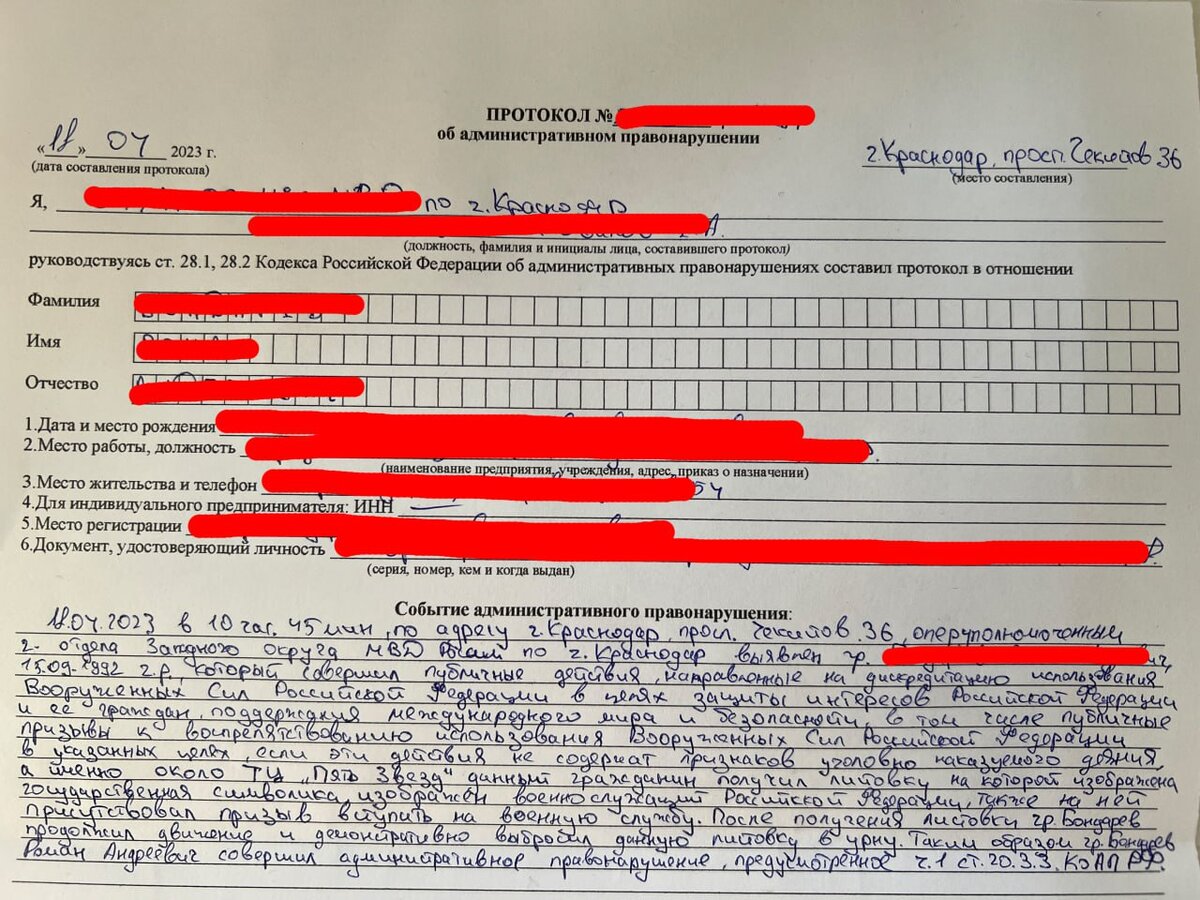 ПРОТОКОЛ №
об административном правонарушении
«18» 04 2023 г.
(дата составления протокола)
г. Краснодар, просп. Чекистов 36
(место составления)
Я, по г. Краснодар
(должность, фамилия и инициалы лица, составившего протокол)
руководствуясь ст. 28.1, 28.2 Кодекса Российской Федерации об административных правонарушениях составил протокол в отношении
Фамилия
Имя
Отчество
1.Дата и место рождения
2.Место работы, должность
(наименование предприятия, учреждения, адрес, приказ о назначении)
3.Место жительства и телефон 54
4.Для индивидуального предпринимателя: ИНН —
5.Место регистрации
6.Документ, удостоверяющий личность
(серия, номер, кем и когда выдан)
Событие административного правонарушения:
18.04.2023 в 10 час. 45 мин, по адресу г. Краснодар, просп. Чекистов 36, оперуполномоченным
2- отдела Западного округа МВД России по г. Краснодар выявлен гр.
15.09.1992 г.р., который совершил публичные действия, направленные на дискредитацию использования
Вооруженных Сил Российской Федерации в целях защиты интересов Российской Федерации
и её граждан, поддержания международного мира и безопасности, в том числе публичные
призывы к воспрепятствованию использования Вооруженных Сил Российской Федерации
в указанных целях, если эти действия не содержат признаков уголовно наказуемого деяния,
а именно около ТЦ „Пять Звезд" данный гражданин получил листовку на которой изображена
государственная символика, изображён военнослужащий Российской Федерации, также на ней
присутствовал призыв вступать на военную службу. После получения листовки гр. Бондарев
продолжил движение и демонстративно выбросил данную листовку в урну. Таким образом гр. Бондарев
Роман Андреевич совершил административное правонарушение, предусмотренное ч.1 ст.20.3.3. КоАП РФ.